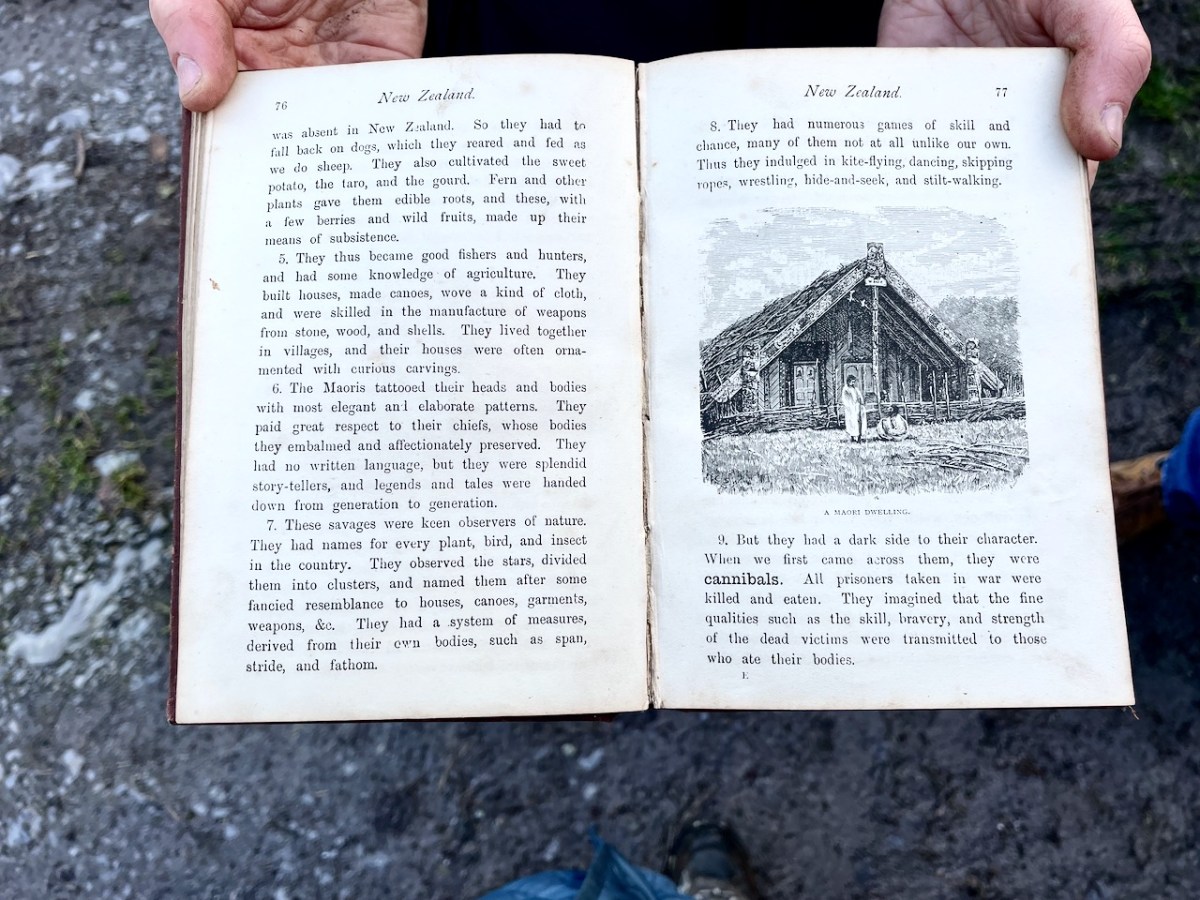 76
New Zealand.
was absent in New Zealand. So they had to
fall back on dogs, which they reared and fed as
we do sheep. They also cultivated the sweet
potato, the taro, and the gourd. Fern and other
plants gave them edible roots, and these, with
a few berries and wild fruits, made up their
means of subsistence.
5. They thus became good fishers and hunters,
and had some knowledge of agriculture. They
built houses, made canoes, wove a kind of cloth,
and were skilled in the manufacture of weapons
from stone, wood, and shells. They lived together
in villages, and their houses were often orna-
mented with curious carvings.
6. The Maoris tattooed their heads and bodies
with most elegant and elaborate patterns. They
paid great respect to their chiefs, whose bodies
they embalmed and affectionately preserved. They
had no written language, but they were splendid
story-tellers, and legends and tales were handed
down from generation to generation.
7. These savages were keen observers of nature.
They had names for every plant, bird, and insect
in the country. They observed the stars, divided
them into clusters, and named them after some
fancied resemblance to houses, canoes, garments,
weapons, &c. They had a system of measures,
derived from their own bodies, such as span,
stride, and fathom.
New Zealand.
77
8. They had numerous games of skill and
chance, many of them not at all unlike our own.
Thus they indulged in kite-flying, dancing, skipping
ropes, wrestling, hide-and-seek, and stilt-walking.
A MAORI DWELLING.
9. But they had a dark side to their character.
When we first came across them, they were
cannibals. All prisoners taken in war were
killed and eaten. They imagined that the fine
qualities such as the skill, bravery, and strength
of the dead victims were transmitted to those
who ate their bodies.
E